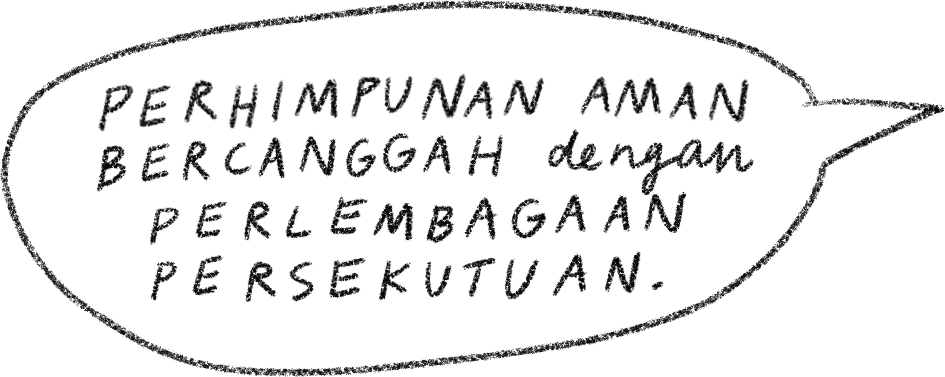 PERHIMPUNAN AMAN
BERCANGGAH dengan
PERLEMBAGAAN
PERSEKUTUAN.